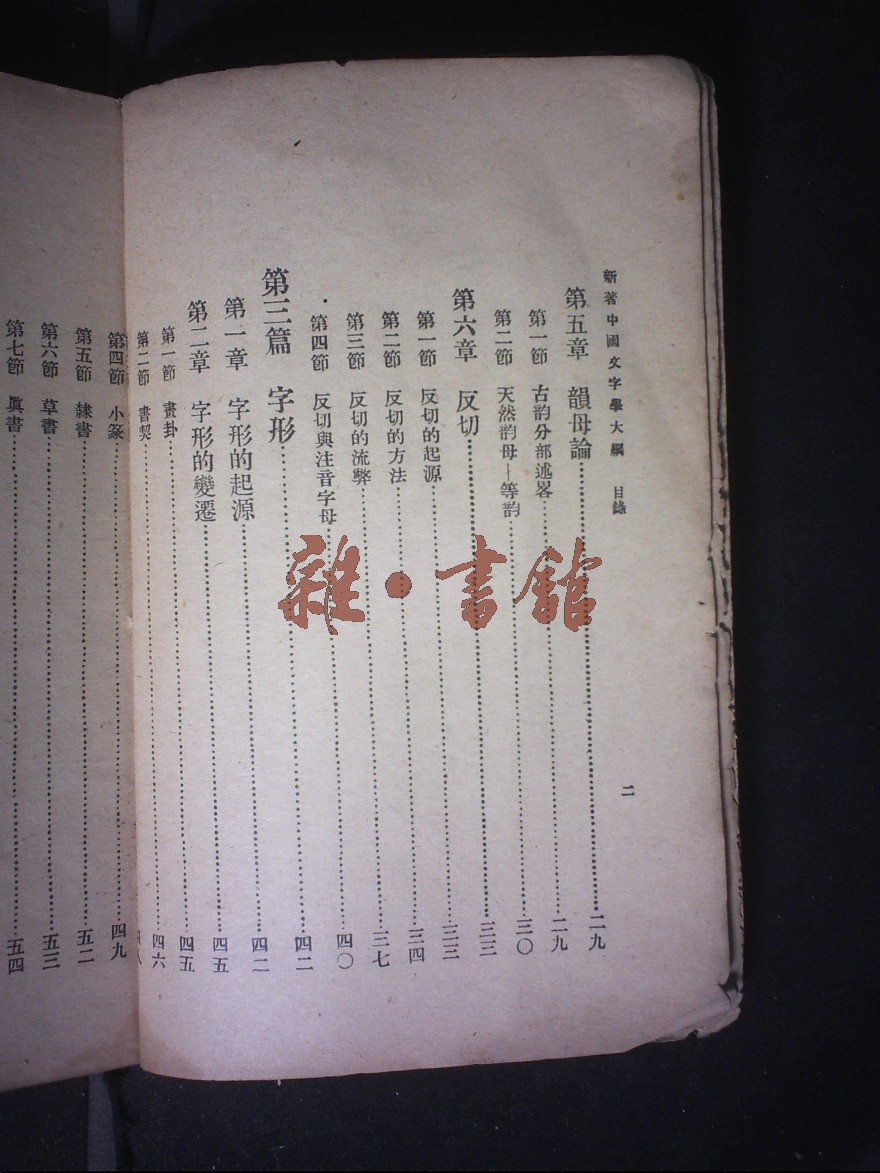 新著中國文字學大綱 目錄 二
第五章 韻母論……二九
第一節 古韵分部述畧……二九
第二節 天然韵母—等韵……三〇
第六章 反切……三三
第一節 反切的起源……三三
第二節 反切的方法……三四
第三節 反切的流弊……三七
第四節 反切與注音字母……四〇
第三篇 字形……四二
第一章 字形的起源……四二
第二章 字形的變遷……四五
第一節 畫卦……四五
第二節 書契……四六
第四節 小篆……四九
第五節 隸書……五二
第六節 草書……五三
第七節 眞書……五四
雜·書館